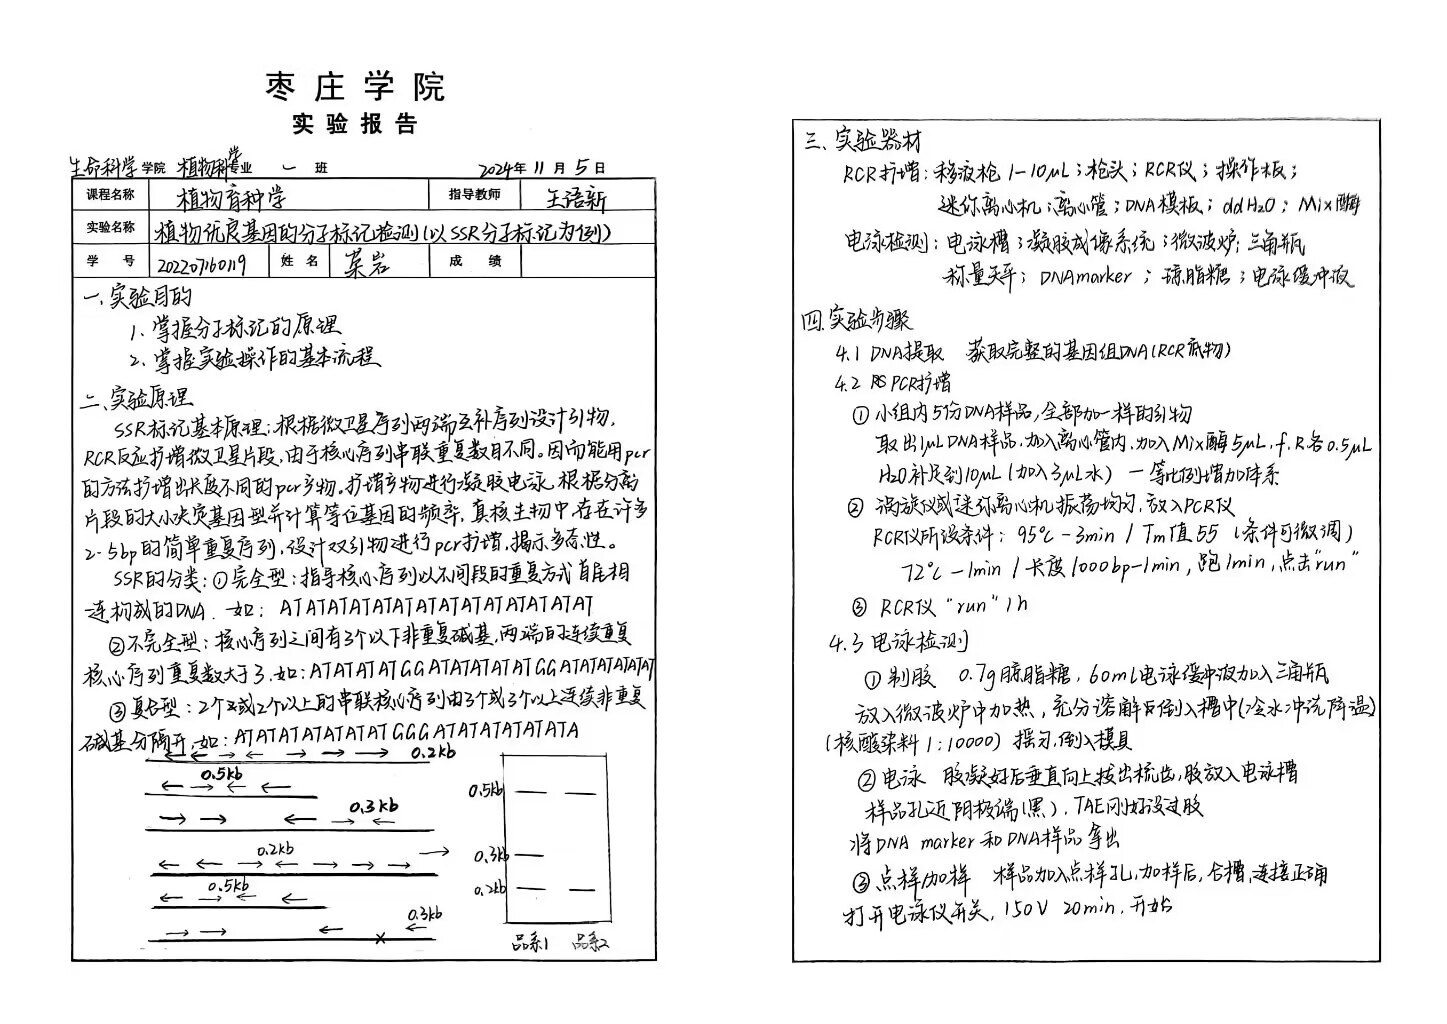 枣庄学院
实验报告
生命科学学院 植物科学专业 一班 2024年11月5日
课程名称 植物育种学 指导教师 王语新
实验名称 植物优良基因的分子标记检测(以SSR分子标记为例)
学号 202207160119 姓名 某岩 成绩
一、实验目的
1、掌握分子标记的原理
2、掌握实验操作的基本流程
二、实验原理
SSR标记基本原理:根据微卫星序列两端互补序列设计引物,
RCR反应扩增微卫星片段,由于核心序列串联重复数目不同。因而能用pcr
的方法扩增出长度不同的pcr产物。扩增产物进行凝胶电泳,根据分离
片段的大小决定基因型并计算等位基因的频率,真核生物中,存在许多
2-5bp的简单重复序列,设计双引物进行pcr扩增,揭示多态性。
SSR的分类:①完全型:指导核心序列以不间段的重复方式首尾相
连构成的DNA.如:ATATATATATATATATATATATATATAT
②不完全型:核心序列之间有3个以下非重复碱基,两端的连续重复
核心序列重复数大于3.如:ATATATATGGATATATATATGGATATATATAT
③复合型:2个或2个以上的串联核心序列由3个或3个以上连续非重复
碱基分隔开,如:ATATATATATATATGGGATATATATATATA
0.2kb
0.5kb
0.3kb
0.2kb
0.5kb
0.3kb
0.5kb
0.3kb
0.2kb
品系1 品系2
三、实验器材
RCR扩增:移液枪1-10μL;枪头;RCR仪;操作板;
迷你离心机;离心管;DNA模板;ddH2O;Mix酶
电泳检测:电泳槽;凝胶成像系统;微波炉;三角瓶
称量天平;DNAmarker;琼脂糖;电泳缓冲液
四.实验步骤
4.1 DNA提取 获取完整的基因组DNA(RCR底物)
4.2 PCR扩增
①小组内5份DNA样品,全部加一样的引物
取出1μLDNA样品,加入离心管内,加入Mix酶5μL,f.R各0.5μL
H2O补足到10μL(加入3μL水)一等比例增加体系
②涡旋仪或迷你离心机振荡均匀,放入PCR仪
RCR仪所设条件:95℃-3min/Tm值55(条件可微调)
72℃-1min/长度1000bp-1min,跑1min,点击"run"
③RCR仪"run"1h
4.3电泳检测
①制胶 0.7g琼脂糖,60ml电泳缓冲液加入三角瓶
放入微波炉中加热,充分溶解后倒入槽中(冷水冲洗降温)
(核酸染料1:10000)摇匀,倒入模具
②电泳 胶凝好后垂直向上拔出梳齿,胶放入电泳槽
样品孔近阴极端(黑),TAE刚好没过胶
将DNA marker和DNA样品拿出
③点样/加样 样品加入点样孔,加样后,合槽,连接正确
打开电泳仪开关,150V 20min,开始